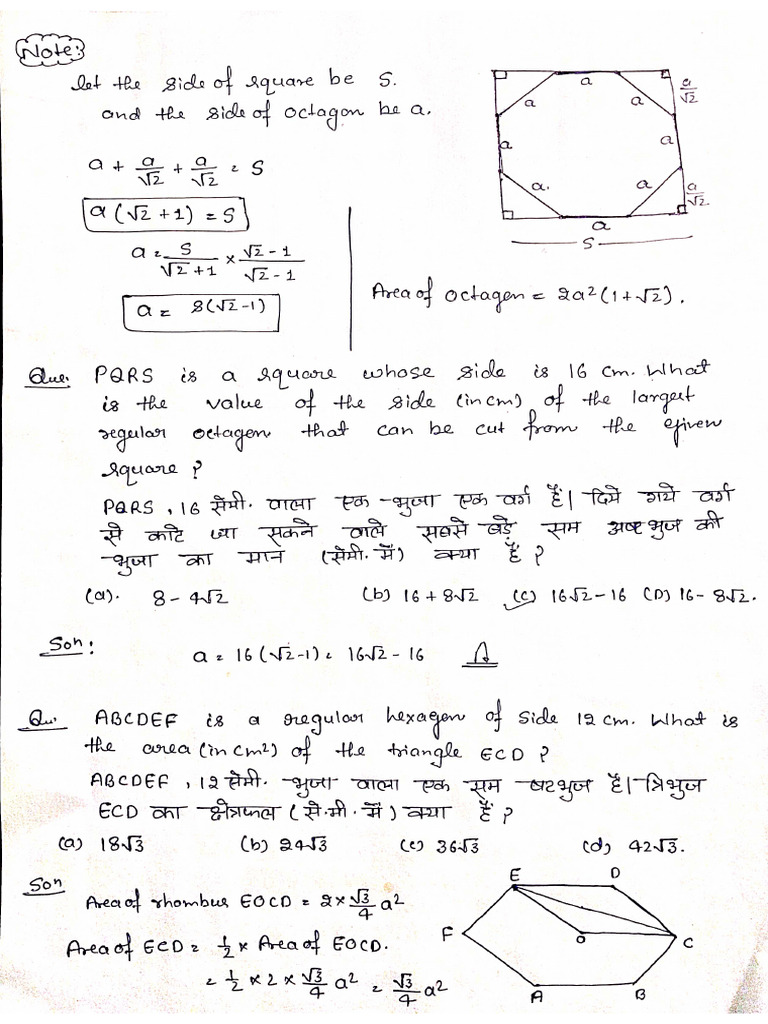 Note:
let the side of square be S.
and the side of octagon be a.
a + a/√2 + a/√2 = S
a(√2 + 1) = S
a = S/(√2+1) × (√2-1)/(√2-1)
a = S(√2-1)
a
a
a
a
a
a.
a
a
a/√2
a/√2.
S
Area of octagen = 2a²(1+√2).
Que: PQRS is a square whose side is 16 cm. What
is the value of the side (in cm) of the largest
regular octagen that can be cut from the given
square?
PQRS, 16 सेमी. वाला एक भुजा एक वर्ग हैं। दिये गये वर्ग
से काटे जा सकने वाले सबसे बड़े सम अष्टभुज की
भुजा का मान (सेमी. में) क्या हैं?
(a). 8-4√2 (b) 16+8√2 (c) 16√2-16 (D) 16-8√2.
Soⁿ: a = 16(√2-1) = 16√2-16
Qu. ABCDEF is a regular hexagen of side 12 cm. What is
the area (in cm²) of the triangle ECD?
ABCDEF, 12 सेमी. भुजा वाला एक सम षटभुज हैं। त्रिभुज
ECD का क्षेत्रफल (से.मी. में) क्या हैं?
(a) 18√3 (b) 24√3 (c) 36√3 (d) 42√3.
Soⁿ Area of rhombus EOCD = 2×√3/4 a²
Area of ECD = 1/2 × Area of EOCD.
= 1/2 × 2 × √3/4 a² = √3/4 a²
E
D
F
O
C
A
B